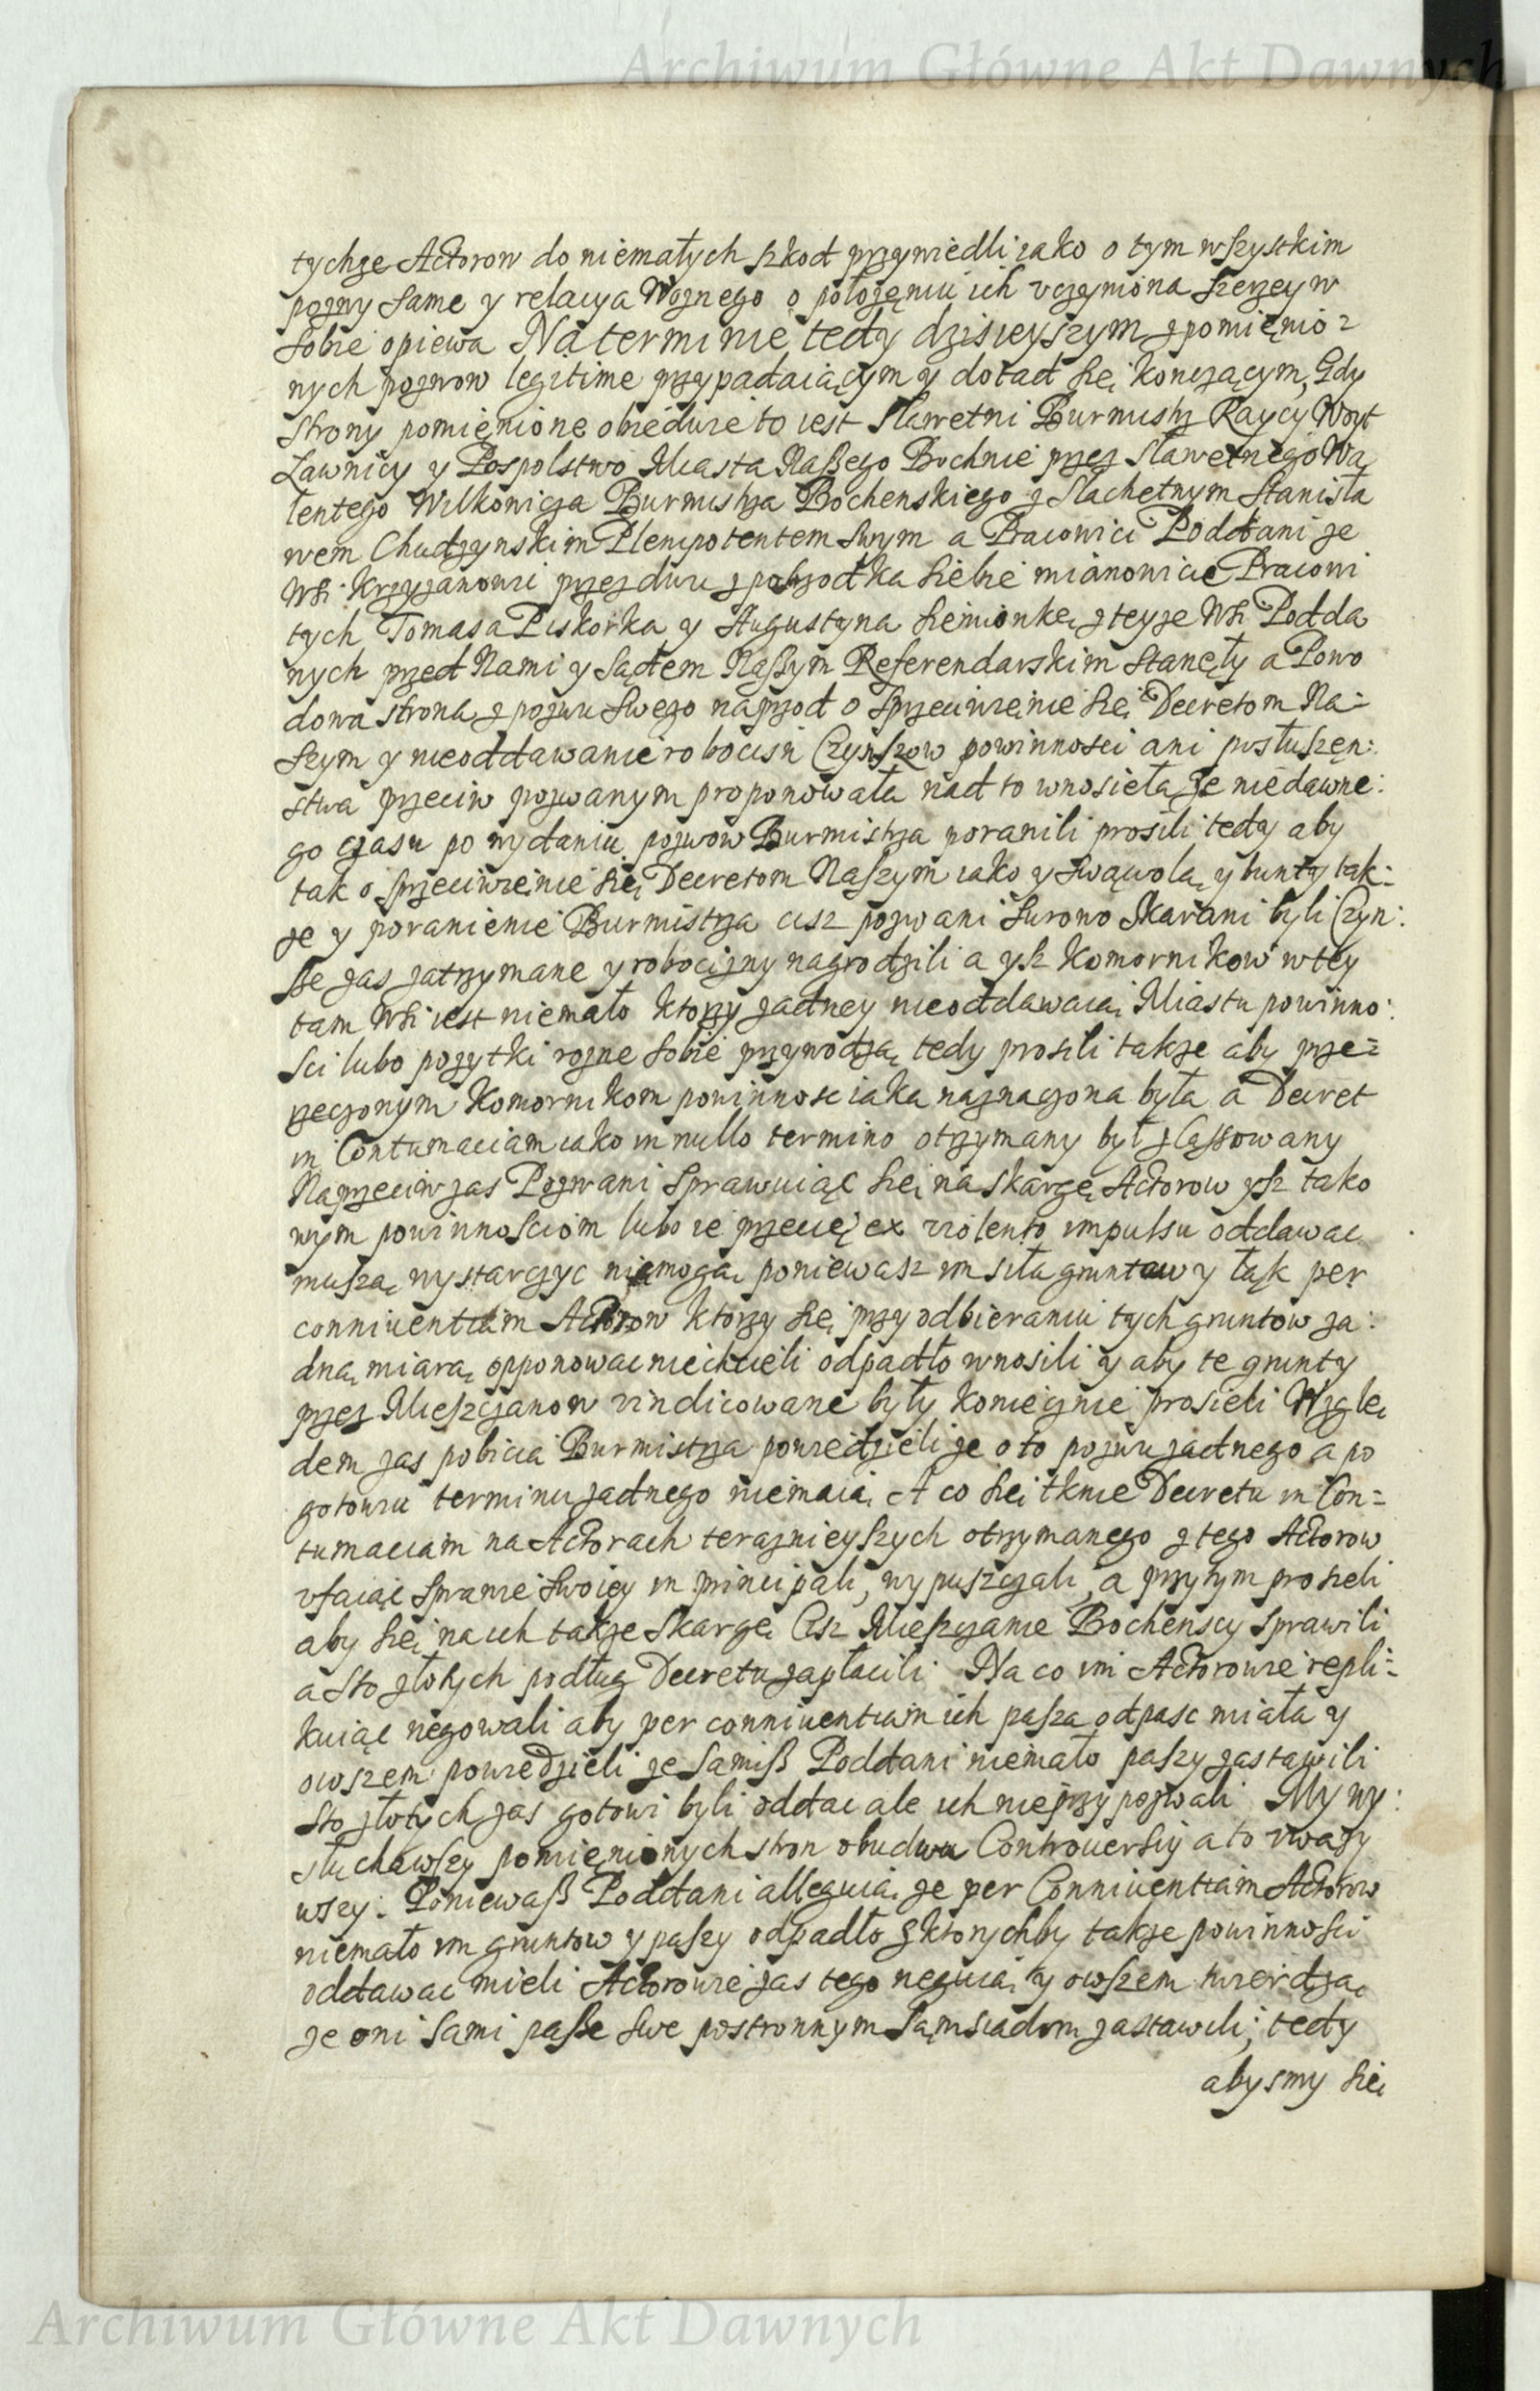 Archiwum Główne Akt Dawnych
tychze Actorow do niemałych szkod przywiedli iako o tym wszystkim
pozwy same y relacya Woznego o połozęniu ich vczyniona szerzey w
sobie opiewa Na terminie tedy dzisieyszym z pomięnio=
nych pozwow legitime przypadaiącym y dotąd się konczącym, Gdy
strony pomięnione obiedwie to iest Sławetni Burmistrz Raycy Woyt
Ławnicy y Pospolstwo Miasta Naszego Bochnie przez Sławetnego Wa
lentego Wilkowicza Burmistrza Bochenskiego z Slachetnym Stanisła
wem Chudzynskim Plenipotentem swym a Pracowici Poddani ze
Wsi Krzyzanowic przez dwu z posrzodka siebie mianowicie Pracowi
tych Tomasa Piskorka y Augustyna Siemionkę z teyze Wsi Podda
nych przed Nami y Sądem Naszym Referendarskim stanęły a Powo
dowa strona z pozwu swego naprzod o sprzeciwięnie się Decretom Na=
szym y nieoddawanie robocisn Czynszow powinnosci ani posłuszęn:
stwa przeciw pozwanym proponowała nad to wnosieła ze niedawne:
go czasu po wydaniu pozwow Burmistrza poranili prosili tedy aby
tak o sprzeciwięnie się Decretom Naszym iako y swąwolą y bunty tak=
ze y poranienie Burmistrza cisz pozwani surowo skarani byli Czyn:
sze zas zatrzymane y robocizny nagrodzili a ysz Komornikow w tey
tam Wsi iest niemało ktorzy zadney nieoddawaią Miastu powinno:
sci lubo pozytki rozne sobie przywodzą tedy prosili takze aby prze=
rzeczonym Komornikom powinnosc iaka naznaczona była a Decret
in Contumaciam iako in nullo termino otrzymany był zCassowany
Naprzeciw zas Pozwani sprawuiąc się na skargę Actorow ysz tako
wym powinnosciom lubo ie przecię ex violento impulsu oddawac
muszą wystarczyc niemogą poniewasz im siła gruntow y łąk per
conniuentiam Actorow ktorzy się przy odbieraniu tych gruntow za:
dną miarą opponowac niechcieli odpadło wnosili y aby te grunty
przez Mieszczanow vindicowane były koniecznie prosieli Wzglę
dem zas pobicia Burmistrza powiedzieli ze o to pozwu zadnego a po
gotowiu terminu zadnego niemaią A co się tknie Decretu in Con=
tumaciam na Actorach teraznieyszych otrzymanego z tego Actorow
vfaiąc sprawie swoiey in principali, wypuszczali, a przytym prosieli
aby się na ich takze skargę Cisz Mieszczanie Bochenscy sprawili
a sto złotych podług Decretu zapłacili Na co im Actorowie repli=
kuiąc negowali aby per conniuentiam ich pasza odpasc miała y
owszem powiedzieli ze samisz Poddani niemało paszy zastawili
sto złotych zas gotowi byli oddac ale ich nieprzypozwali My wy:
słuchawszy pomięnionych stron obudwu Controuersiy a to vwazy
wszy. Poniewasz Poddani alleguią ze per Conniuentiam Actorow
niemało im gruntow y paszy odpadło z ktorychby takze powinnosci
oddawac mieli Actorowie zas tego neguią y owszem twierdzą
ze oni sami pasze swe postronnym sąmsiadom zastawili; tedy
abysmy się
Archiwum Główne Akt Dawnych